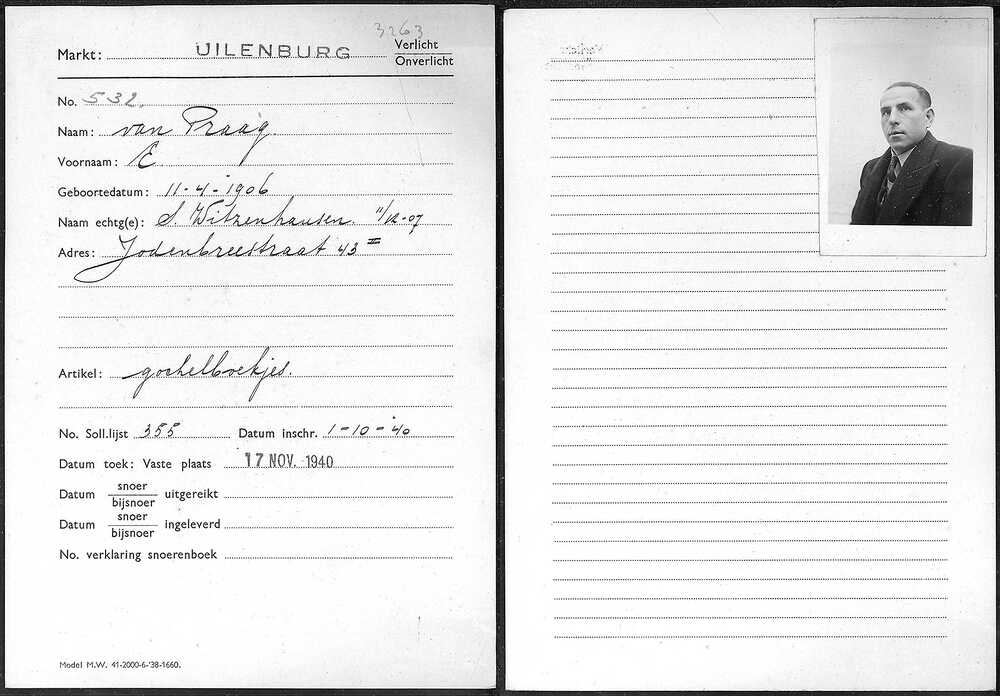 3263
Markt: UILENBURG Verlicht
Onverlicht
No. 532.
Naam: van Praag.
Voornaam: E
Geboortedatum: 11-4-1906
Naam echtg(e): S. Witzenhausen. 11/12-07
Adres: Jodenbreestraat 43 II
Artikel: goochelboekjes.
No. Soll.lijst 355 Datum inschr. 1-10-40
Datum toek: Vaste plaats 17 NOV. 1940
Datum snoer
bijsnoer uitgereikt
Datum snoer
bijsnoer ingeleverd
No. verklaring snoerenboek
Model M.W. 41-2000-6-'38-1660.